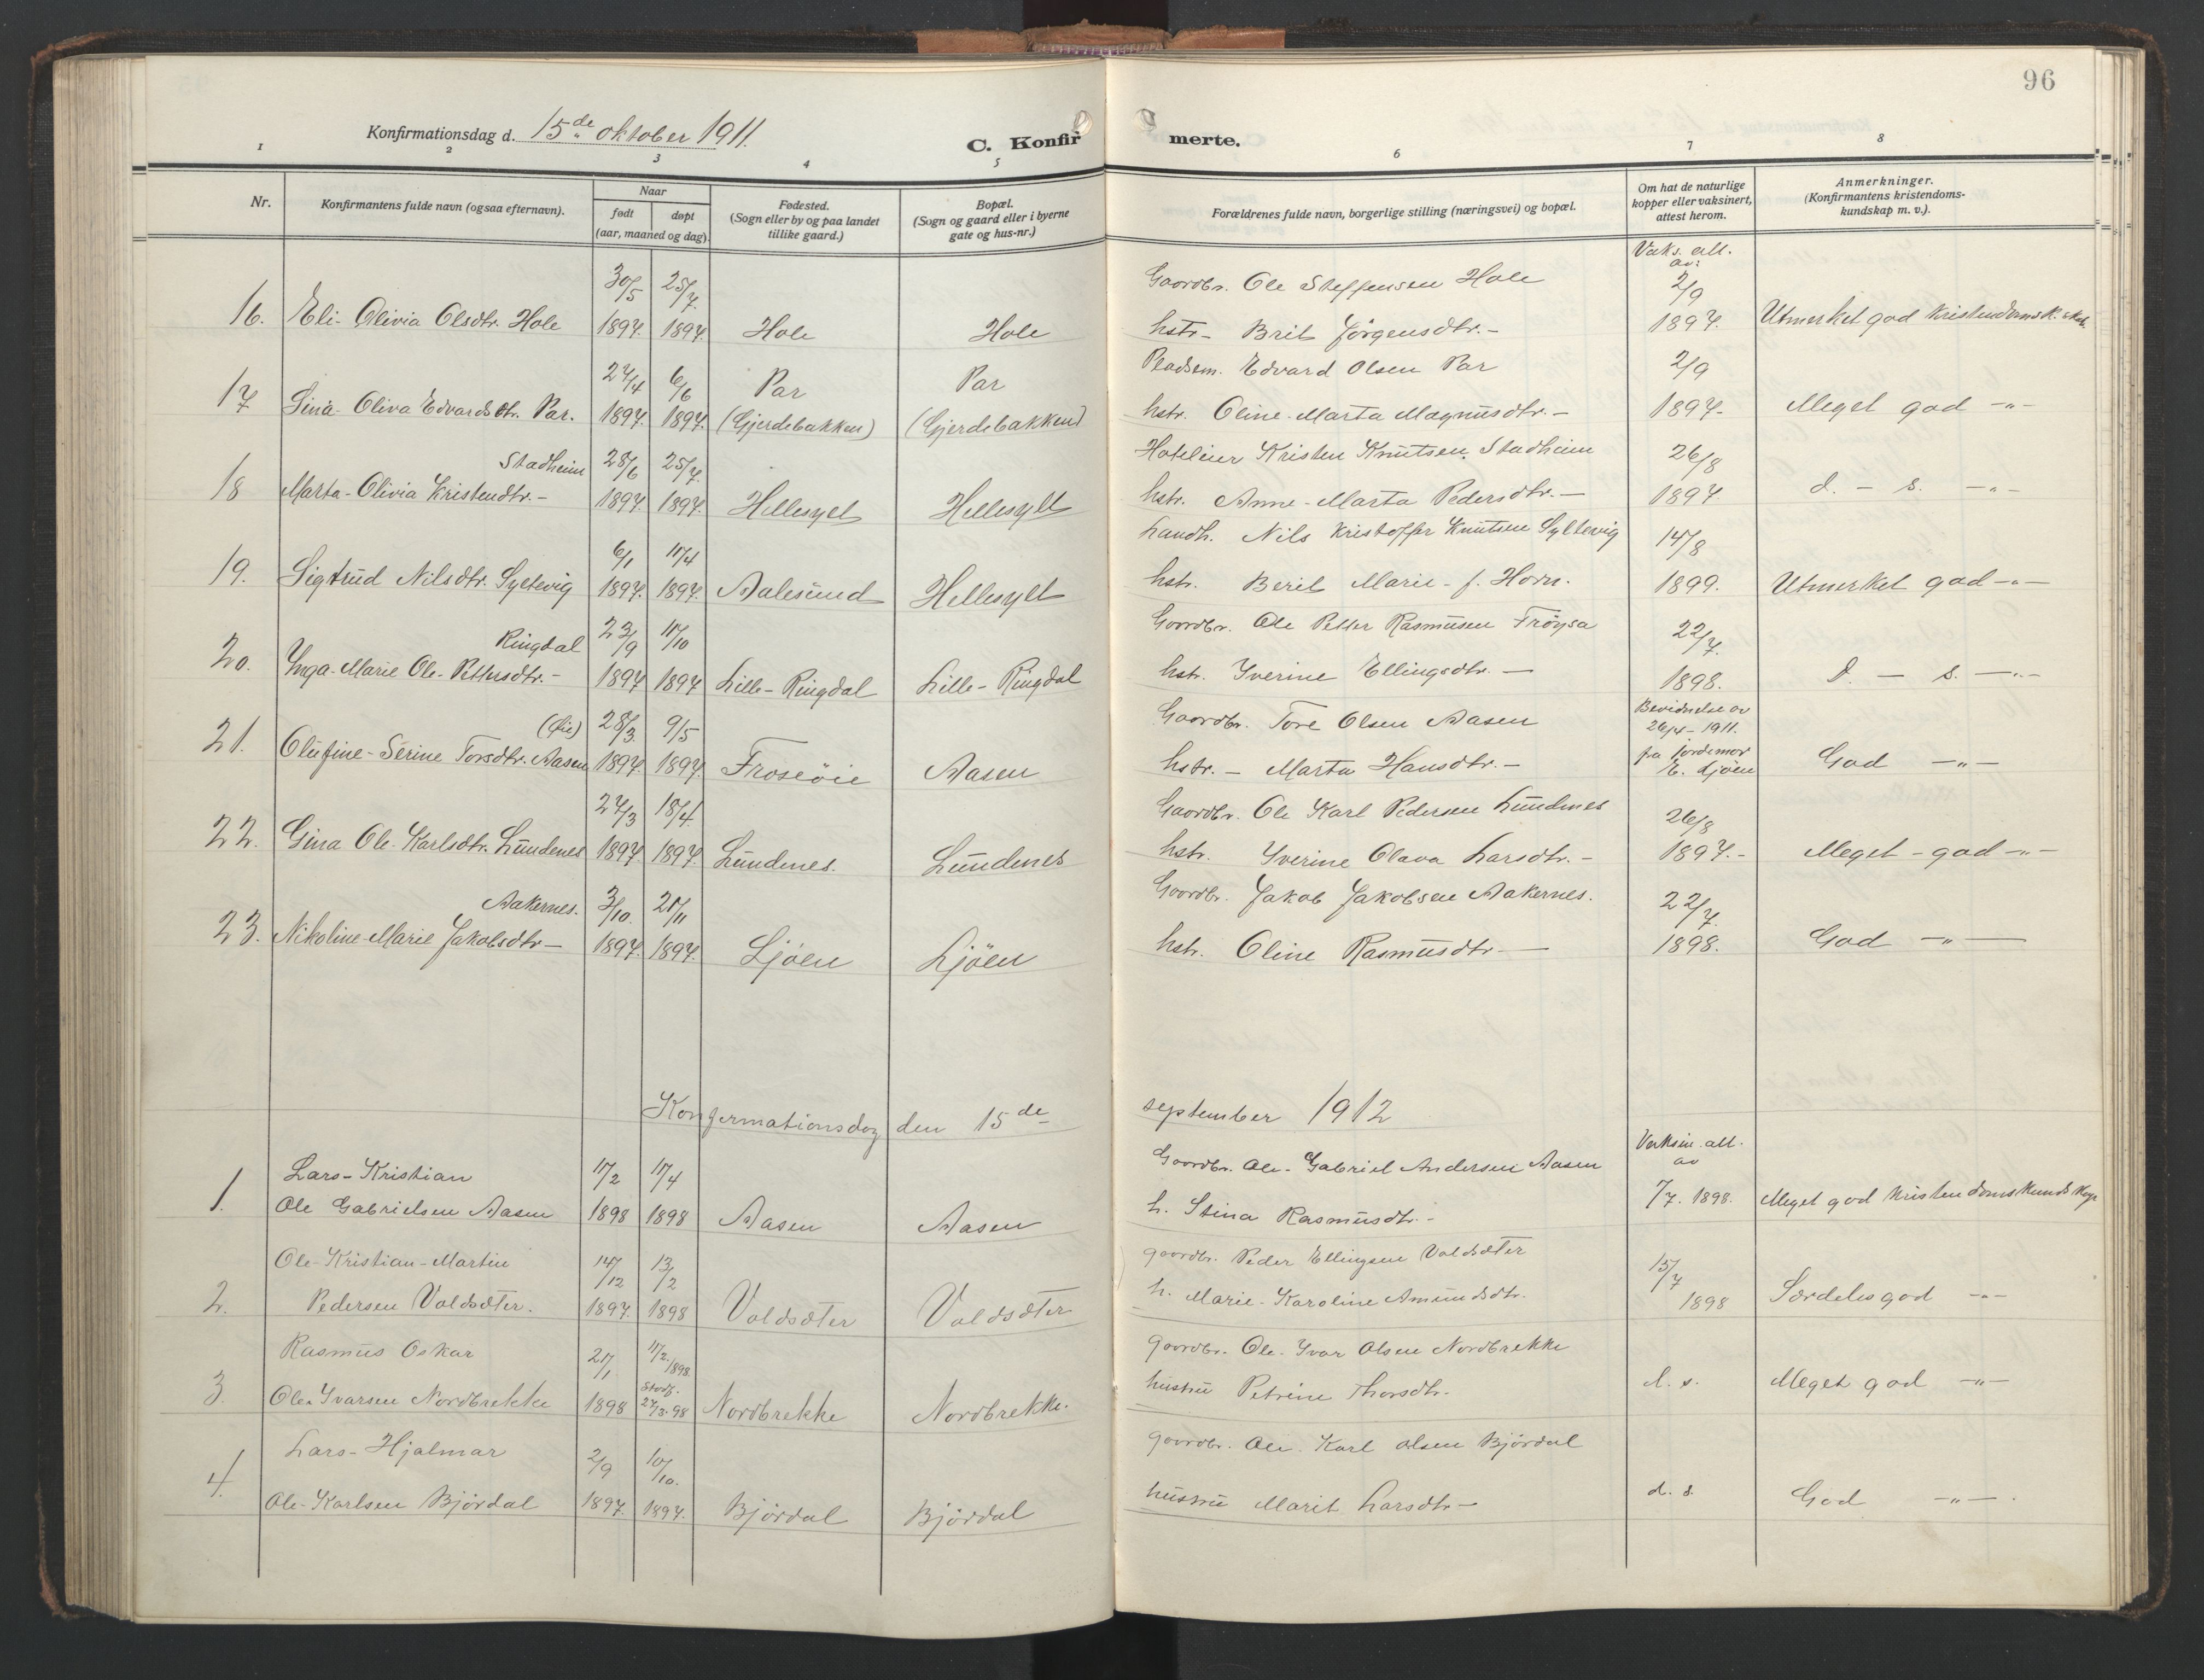 96
Konfirmationsdag d. 15de oktober 1911.
C. Konfir
merte.
1 2 3 4 5 6 7 8
Nr.
Konfirmantens fulde navn (ogsaa efternavn).
Naar
født
døpt
(aar, maaned og dag).
Fødested.
(Sogn eller by og paa landet
tillike gaard.)
Bopæl.
(Sogn og gaard eller i byerne
gate og hus-nr.)
Forældrenes fulde navn, borgerlige stilling (næringsvei) og bopæl.
Om hat de naturlige
kopper eller vaksinert,
attest herom.
Anmerkninger.
(Konfirmantens kristendoms-
kundskap m. v.).
Vaks. att.
av:
30/5 25/7. Gaardbr. Ole Steffensen Hole 2/9
16. Eli-Olivia Olsdtr. Hole 1897. 1897. Hole Hole hstr- Brit Jörgensdtr.- 1897. Utmerket god kristendomsk.skab.
27/4 6/6 Par Par Pladsem. Edvard Olsen Par 2/9
17 Lina-Oliva Edvardsdtr. Par. 1897. 1897. (Gjerdebakken) (Gjerdebakken) hstr. Oline-Marta Magnusdtr.- 1897. Meget god -"-
Stadheim 28/6 25/7. Hoteleier Kristen Knutsen Stadheim 26/8
18 Marta-Olivia Kristendtr.- 1897. 1897. Hellesylt Hellesylt hstr. Anne-Marta Pedersdtr.- 1897 d. - s. -"-
6/1 11/4 Landh. Nils Kristoffer Knutsen Syltevig 14/8
19. Sigtrud Nilsdtr. Syltevig 1897. 1897. Aalesund Hellesylt hstr. Berit Marie - f. Horn. 1899. Utmerket god -"-
Ringdal 23/9 17/10 Gaardbr. Ole Petter Rasmusen Fröysa 22/7.
20. Inga-Marie Ole-Pettersdtr.- 1897 1897 Lille-Ringdal Lille-Ringdal hstr. Iverine Ellingsdtr.- 1898. d. - s. -"-
28/3. 9/5 Gaardbr. Tore Olsen Aasen Bevidnelse av
26/4-1911.
21. Olufine-Serine Torsdtr. Aasen 1897. 1897. Froseöie Aasen hstr.- Marta Hansdtr.- fra jordemor
E. Ljöen God -"-
27/3 18/4. Gaardbr. Ole Karl Pedersen Lundenes 26/8
22. Gina Ole-Karlsdtr. Lundenes 1897. 1897. Lundenes. Lundenes hstr. Iverine Olava Larsdtr.- 1897.- Meget-god -"-
Aakernes. 3/10. 21/11 Gaardbr. Jakob Jakobsen Aakernes. 22/7.
23. Nikoline-Marie Jakobsdtr- 1897. 1897. Ljöen Ljöen hstr. Oline Rasmusdtr- 1898. God -"-
Konfermationsdag den 15de september 1912
Vaksin. att.
av
Lars-Kristian 17/2 17/4 Gaardbr. Ole-Gabriel Andersen Aasen
1. Ole Gabrielsen Aasen 1898 1898 Aasen Aasen h. Stina Rasmusdtr.- 7/7. 1898. Meget god kristendomskundskap
Ole-Kristian-Martin 14/12 13/2 gaardbr. Peder Ellingsen Valdsæter 15/7
2. Pedersen Valdsæter. 1897. 1898 Valdsæter Valdsæter h. Marie-Karoline Amundsdtr. 1898 Særdeles god -"-
Rasmus Oskar 21/1 17/2 1898. gaardbr. Ole-Ivar Olsen Nordbrekke
3. Ole-Ivarsen Nordbrekke 1898 Stadf. 27/3.98 Nordbrekke Nordbrekke. hustru Petrine Thorsdtr. d. s. Meget god -"-
Lars-Hjalmar 2/9 10/10. gaardbr. Ole-Karl Olsen Björdal
4. Ole-Karlsen Björdal 1897. 1897. Björdal Björdal hustru Marit Larsdtr- d. s. God -"-.